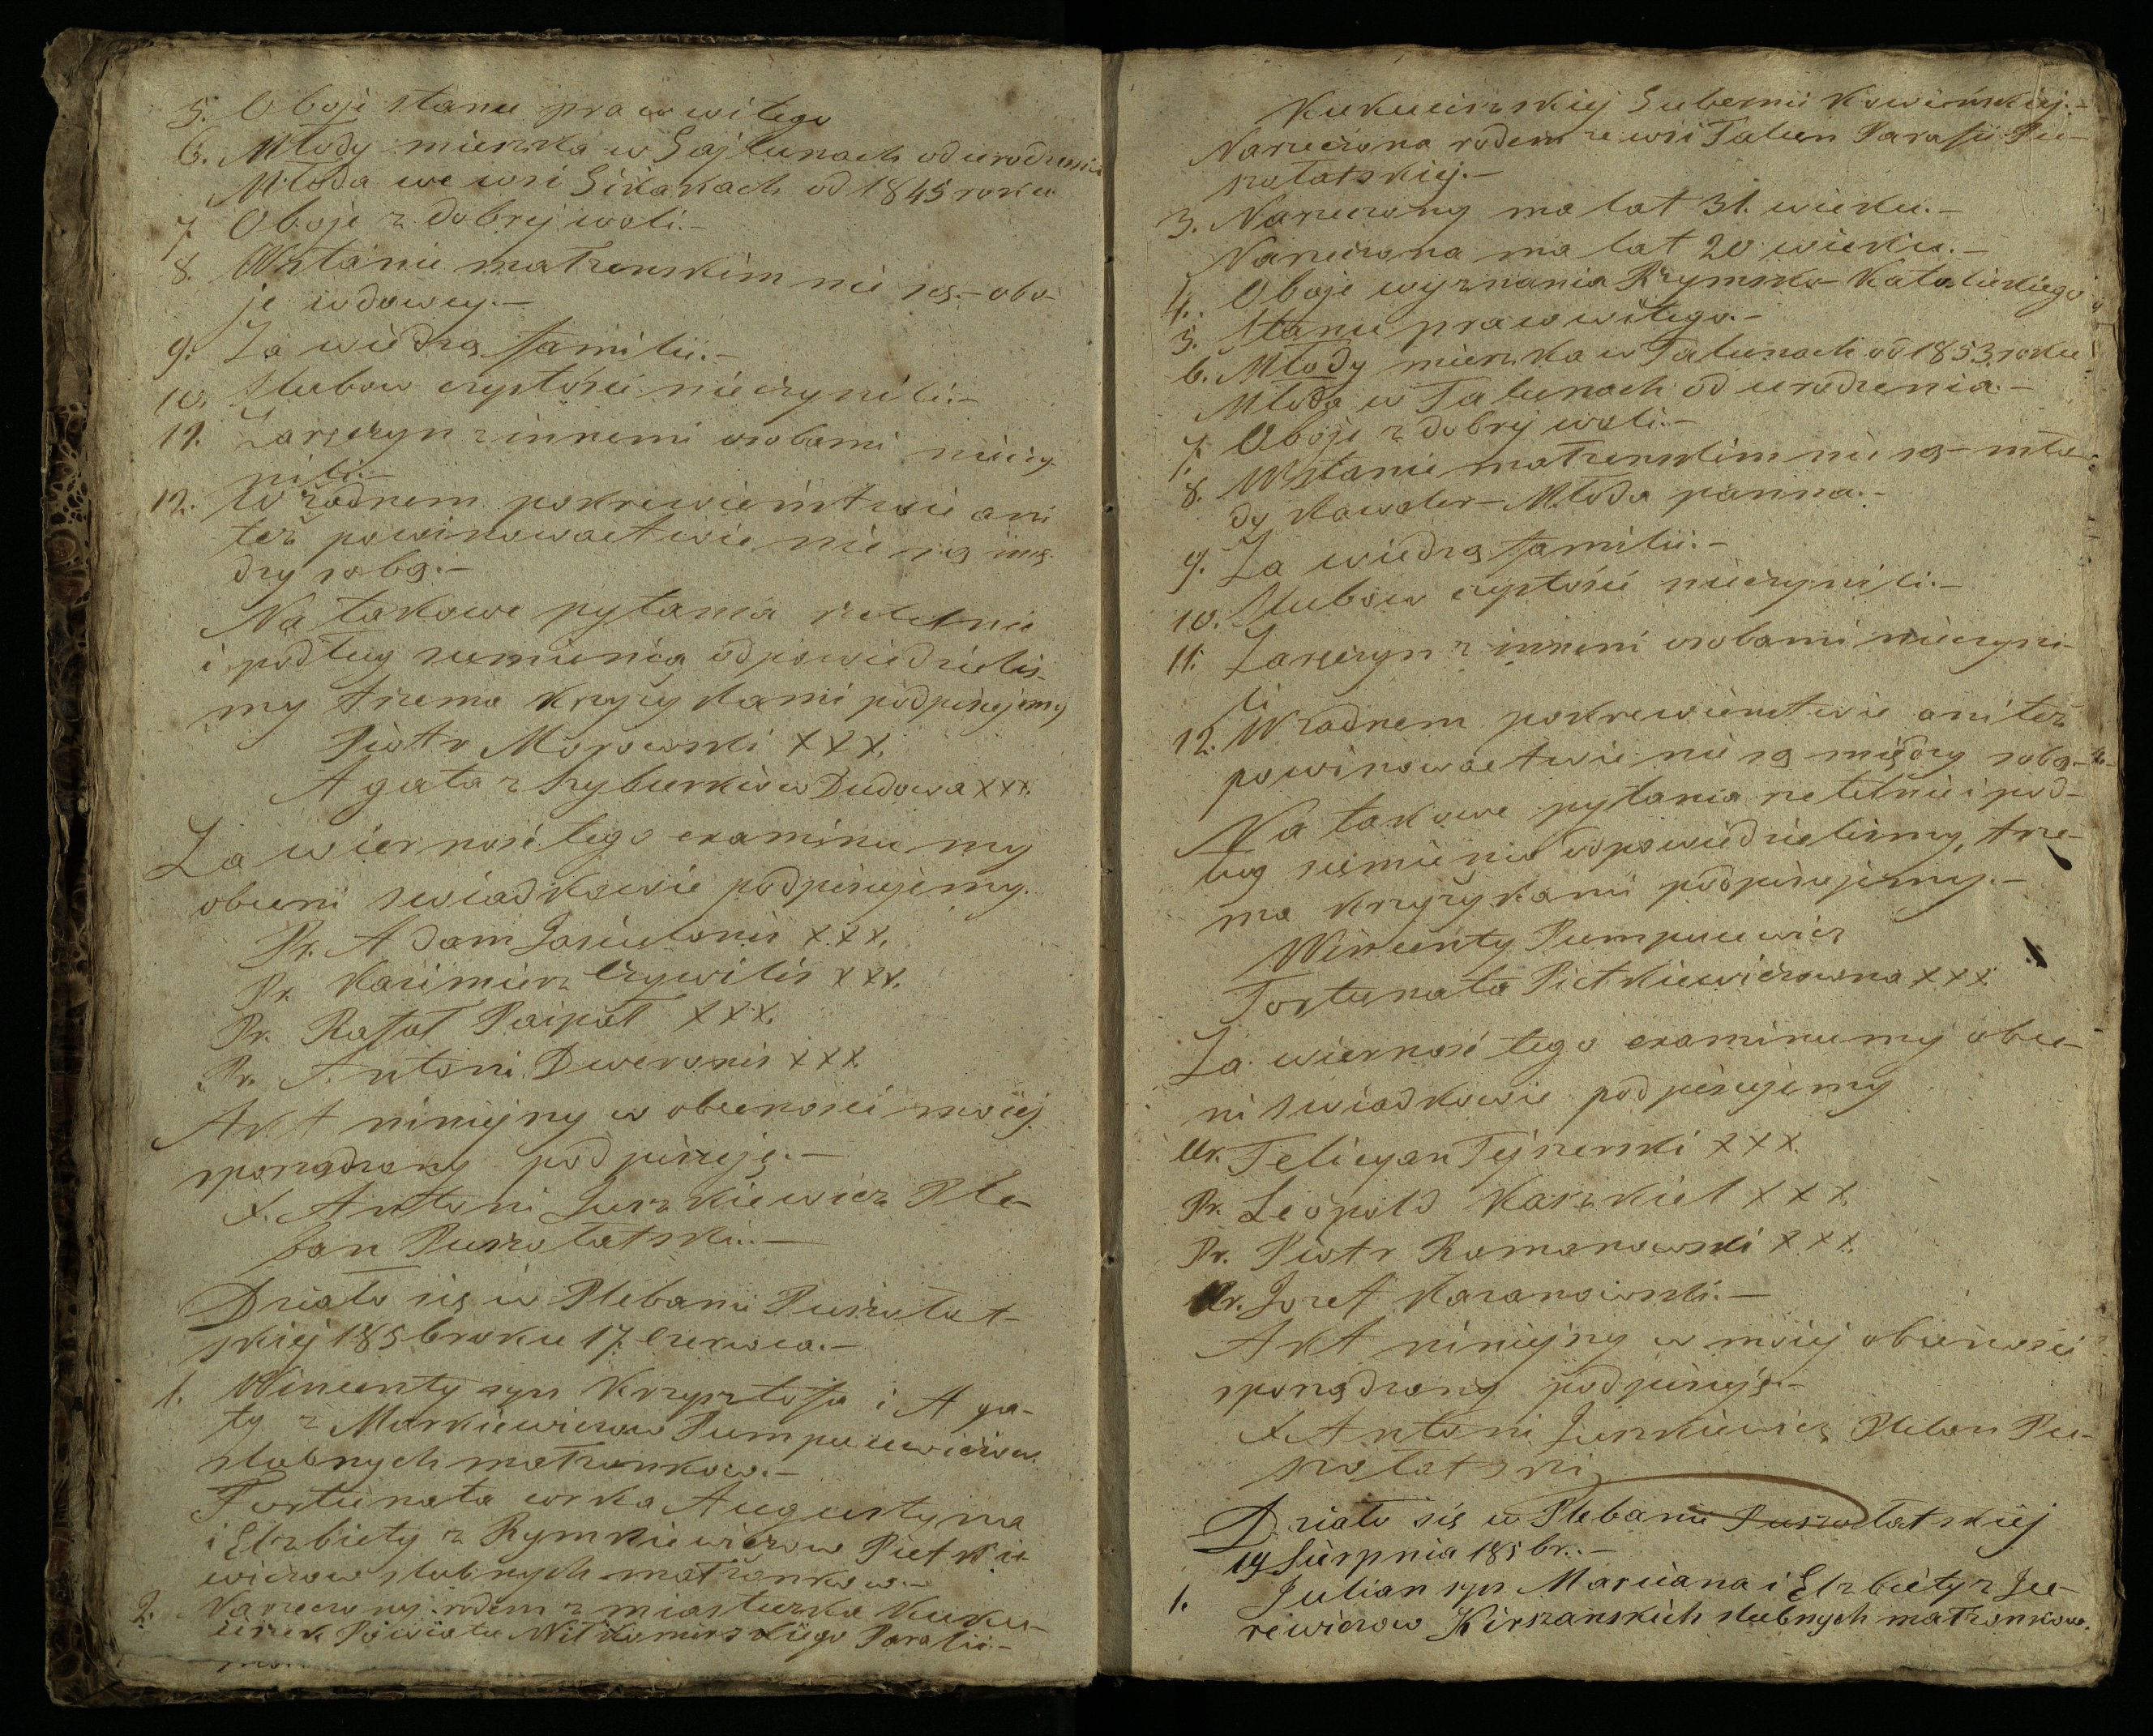 5. Oboje stanu prawowitego
6. Młody mieszka w Gajlunach od urodzenia
Młoda we wsi Sikakach od 1845 roku
7. Oboje z dobrej woli.-
8. W stanie małżenskim nie są.- obo-
je wdowcy.-
9. Za wiedzą familii.-
10. Slubow czystości nieczynili.-
11. Zaręczyn z innemi osobami nieczy-
nili.-
12. W żadnem pokrewieństwie ani
też powinowactwie nie są mię-
dzy sobą.-
Na takowe pytania rzetelnie
i podług sumienia odpowiedzieliś-
my trzema krzyżykami podpisujemy
Piotr Morowski XXX.
Agata z Szyburkiow Dudowa XXX.
Za wierność tego examinu my
obecni swiadkowie podpisujemy.
Pr. Adam Jasiulonis XXX.
Pr. Kazimierz Czywilis XXX.
Pr. Rafał Paipał XXX.
Pr. Antoni Dweronis XXX
Akt niniejszy w obecności mojej
sporządzony podpisuję.-
X. Antoni Juszkiewicz Ple-
ban Puszołatski.-
Działo się w Plebanii Puszołat-
skiej 1856 roku 17 Czerwca.-
1. Wincenty syn Krzysztofa i Aga-
ty z Markiewiczow Pumpucewiczow
slubnych małżonkow.-
Fortunata corka Augustyna
i Elzbiety z Rymkiewiczow Pietkie-
wiczow slubnych małżonkow.-
2. Narzeczony rodem z miasteczka Kuku-
ciszek Powiatu Wiłkomirskiego Parafii-
Kukuciszskiej Gubernii Kowieńskiej.-
Narzeczona rodem ze wsi Talun Parafii Pu-
szołatskiej.-
3. Narzeczony ma lat 31. wieku.-
Narzeczona ma lat 20 wieku.-
4. Oboje wyznania Rzymsko-Katolickiego
5. Stanu prawowitego.-
6. Młody mieszka w Talunach od 1853 roku
Młoda w Talunach od urodzenia.-
7. Oboje z dobrej woli.-
8. W stanie małżenskim nie są- mło-
dy kawaler- Młoda panna.-
9. Za wiedzą familii.-
10. Slubow czystości nieczynili.-
11. Zaręczyn z innemi osobami nieczyni-
li
12. W żadnem pokrewienstwie ani też
powinowactwie nie są między sobą.-
Na takowe pytania rzetelnie i pod-
ług sumienia odpowiedzieliśmy, trze-
ma krzyżykami podpisujemy.-
Wincenty Pumpucewicz
Fortunata Pietkiewiczowna XXX
Za wierność tego examinu my obec-
ni swiadkowie podpisujemy
Ur. Felicyan Tejszerski XXX.
Pr. Leopold Kaszkiel XXX.
Pr. Piotr Romanowski XXX.
Ur. Jozef Karanowski.-
Akt niniejszy w mojej obecności
sporządzony podpisuję-
X Antoni Juszkiewicz Pleban Pu-
szołatski
Działo się w Plebanii Puszołatskiej
19 Sierpnia 1856 r.-
1. Julian syn Marciana i Elzbiety z Ju-
rewiczow Kirszanskich slubnych małżonkow.